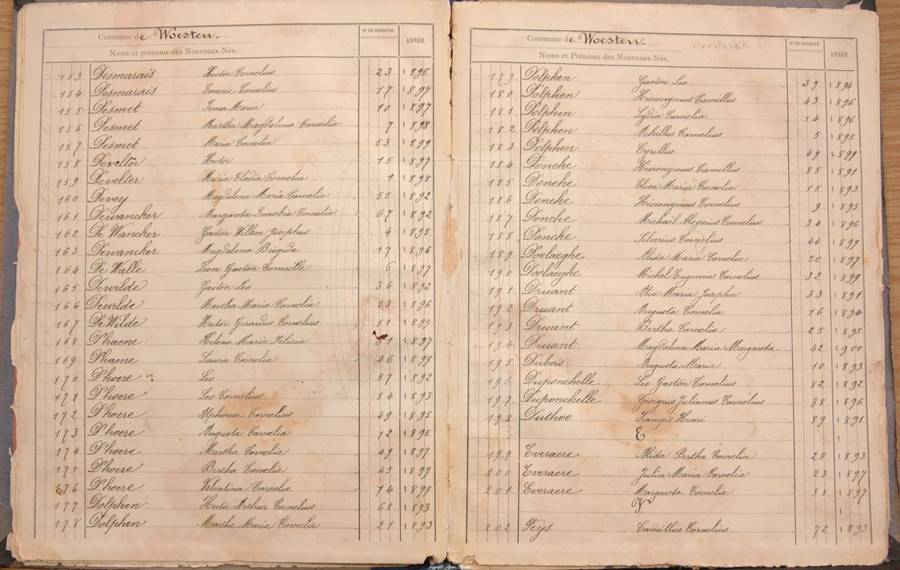 Commune de Woesten.
Nº DU REGISTRE
ANNÉE.
Noms et prénoms des Nouveaux-Nés.
153 Desmarais Hector Cornelius 23 1896
154 Desmarais Emeric Cornelius 17 1897
155 Desmet Irma Maria 10 1897
156 Desmet Martha Magdalena Cornelia 7 1898
157 Desmet Maria Cornelia 53 1899
158 Develter Hector 15 1897
159 Develter Maria Elodia Cornelia 1 1898
160 Devoy Magdalena Maria Cornelia 55 1892
161 Dewancker Margareta Zenobia Cornelia 67 1892
162 De Wancker Gaston Willem Josephus 4 1895
163 Dewancker Magdalena Brigida 17 1896
164 De Walle Leon Gaston Corneille 6 1897
165 Dewilde Gaston Leo 36 1892
166 Dewilde Martha Maria Cornelia 23 1896
167 De Wilde Hector Gerardus Cornelius 51 1899
168 D'haene Helena Maria Felicia 1897
169 D'haene Laura Cornelia 46 1899
170 D'hoere Leo 57 1892
171 D'hoere Leo Cornelius 54 1893
172 D'hoere Alphonse Cornelius 49 1895
173 D'hoere Augusta Cornelia 12 1896
174 D'hoere Martha Cornelia 49 1897
175 D'hoere Bertha Cornelia 45 1899
176 D'hoere Valentina Cornelia 74 1899
177 Dolphen Hector Arthur Cornelius 68 1893
178 Dolphen Martha Maria Cornelia 21 1893
Commune de Woesten.
Nº DU REGISTRE
ANNÉE
Noms et Prénoms des Nouveaux-Nés.
179 Dolphen Gaston Leo 39 1894
180 Dolphen Hieronymus Camillus 43 1896
181 Dolphen Lydia Cornelia 14 1896
182 Dolphen Achilles Cornelius 5 1895
183 Dolphen Cyrillus 49 1899
184 Donche Hieronymus Camillus 85 1891
185 Donche Elisa Maria Cornelia 75 1893
186 Donche Hieronymus Cornelius 9 1895
187 Donche Michael Aloysius Cornelius 34 1896
188 Donche Silverius Cornelius 44 1899
189 Doolaeghe Alida Maria Cornelia 50 1897
190 Doolaeghe Michel Eugenius Cornelius 32 1899
191 Druant Maria Josepha 33 1891
192 Druant Augusta Cornelia 16 1894
193 Druant Bertha Cornelia 25 1895
194 Druant Magdalena Maria Margareta 42 1900
195 Dubois Augusta Maria 10 1893
196 Duponchelle Leo Gaston Cornelius 82 1892
197 Duponchelle Georgius Julianus Cornelius 38 1896
198 Duthoo François Henri 89 1891
E
199 Everaere Alida Bertha Cornelia 28 1893
200 Everaere Julia Maria Cornelia 23 1897
201 Everaere Margareta Cornelia 38 1897
F
202 Feys Camillus Cornelius 72 1893